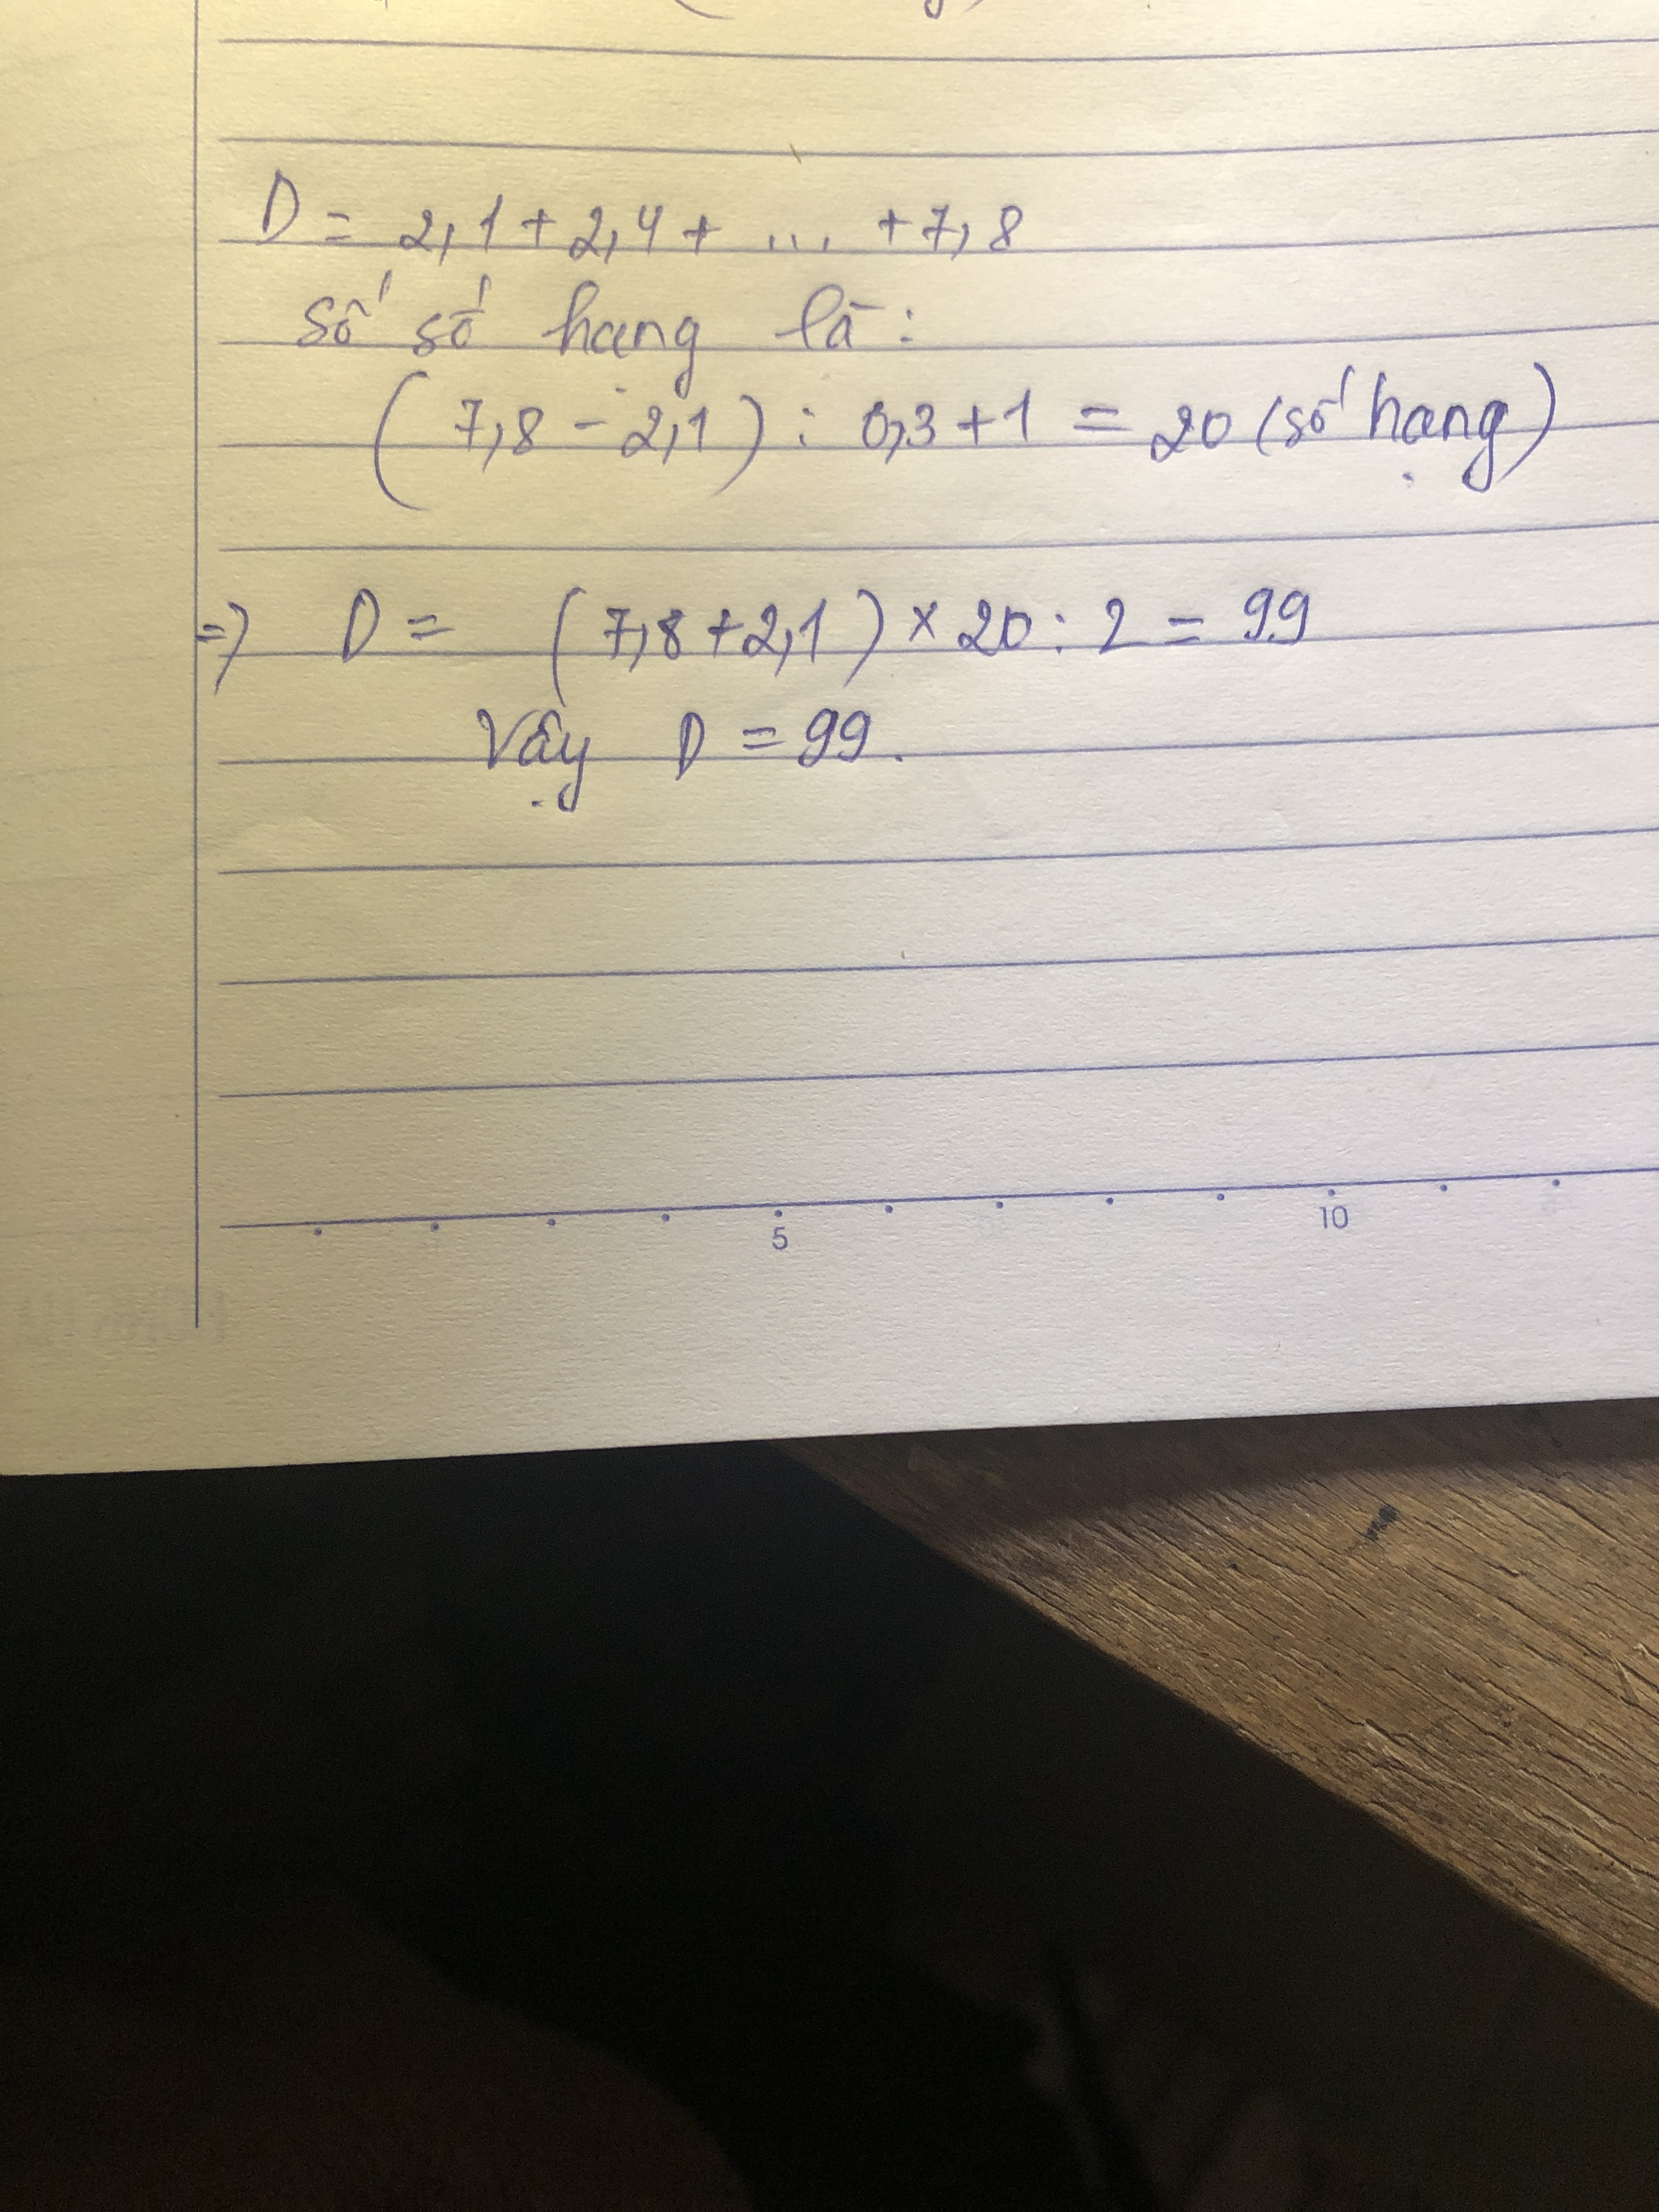 D = 2,1 + 2,4 + ... + 7,8
số số hạng là:
( 7,8 - 2,1 ) : 0,3 + 1 = 20 (số hạng)
=> D = ( 7,8 + 2,1 ) × 20 : 2 = 99
Vậy D = 99.
5 10